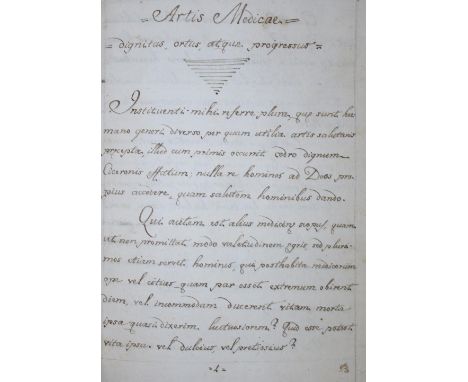 = Artis Medicae =
= dignitas, ortus, atque progressus =
Instituenti mihi referre plura, quę sunt hu=
mano generi diverso per quam utilia artis salutaris
pręcepta, illud cum primis occurrit cedro dignum
Ciceronis effatum; nulla re homines ad Deos pro=
pius accedere, quam salutem hominibus dando.
Qui autem est alius medicinę scopus, quam
ut non promittat modo valetudinem ęgris sed pluri=
mos etiam servet homines, qui posthabita medicorum
ope vel citius quam par esset extremum obirent
diem, vel incommodam ducerent vitam morte
ipsa quasi dixerim luctuosiorem? Quid esse potest
vita ipsa vel dulcius, vel pretiosius?